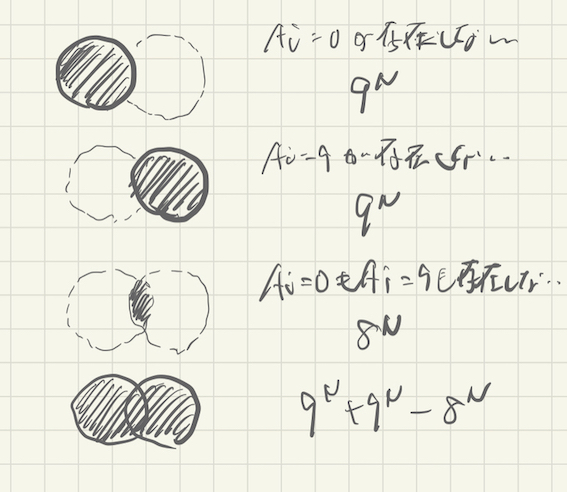 Ai=0が存在しない
9^N
Ai=9が存在しない
9^N
Ai=0もAi=9も存在しない
8^N
9^N+9^N-8^N